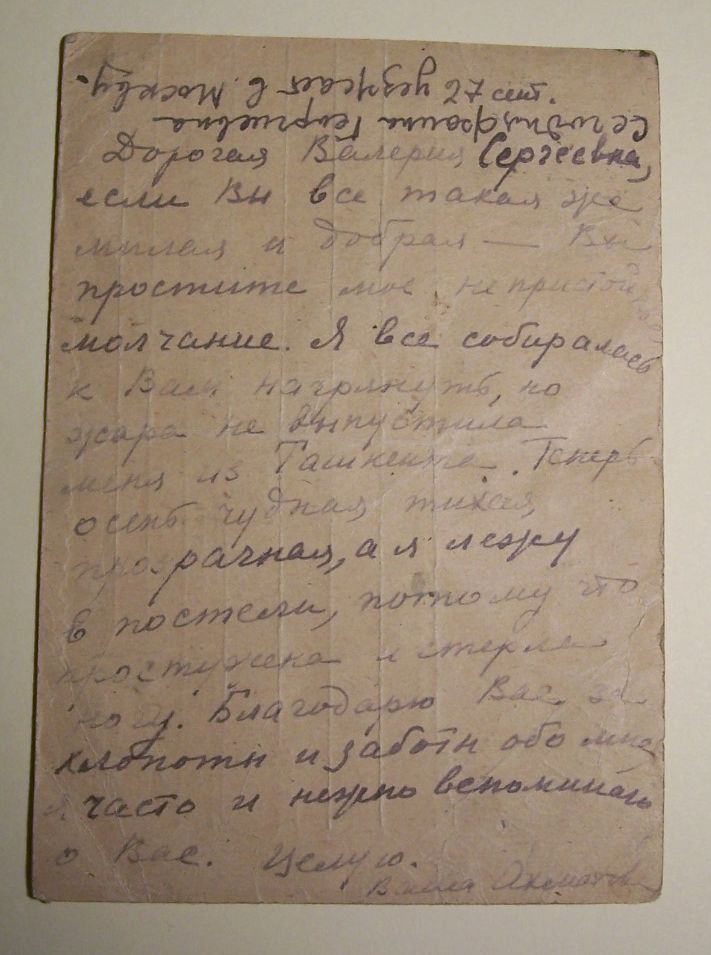 Дорогая Валерия Сергеевна,
если Вы все такая же
милая и добрая — Вы
простите мое непристойное
молчание. Я все собиралась
к Вам нагрянуть, но
жара не выпустила
меня из Ташкента. Теперь
осень чудная тихая,
прозрачная, а я лежу
в постели, потому что
простужена и стерла
ногу. Благодарю Вас за
хлопоты и заботы обо мне,
я часто и нежно вспоминаю
о Вас. Целую.
Ваша Ахматова
Сегодня Фаина Георгиевна
уезжает в Москву.
27 сент.